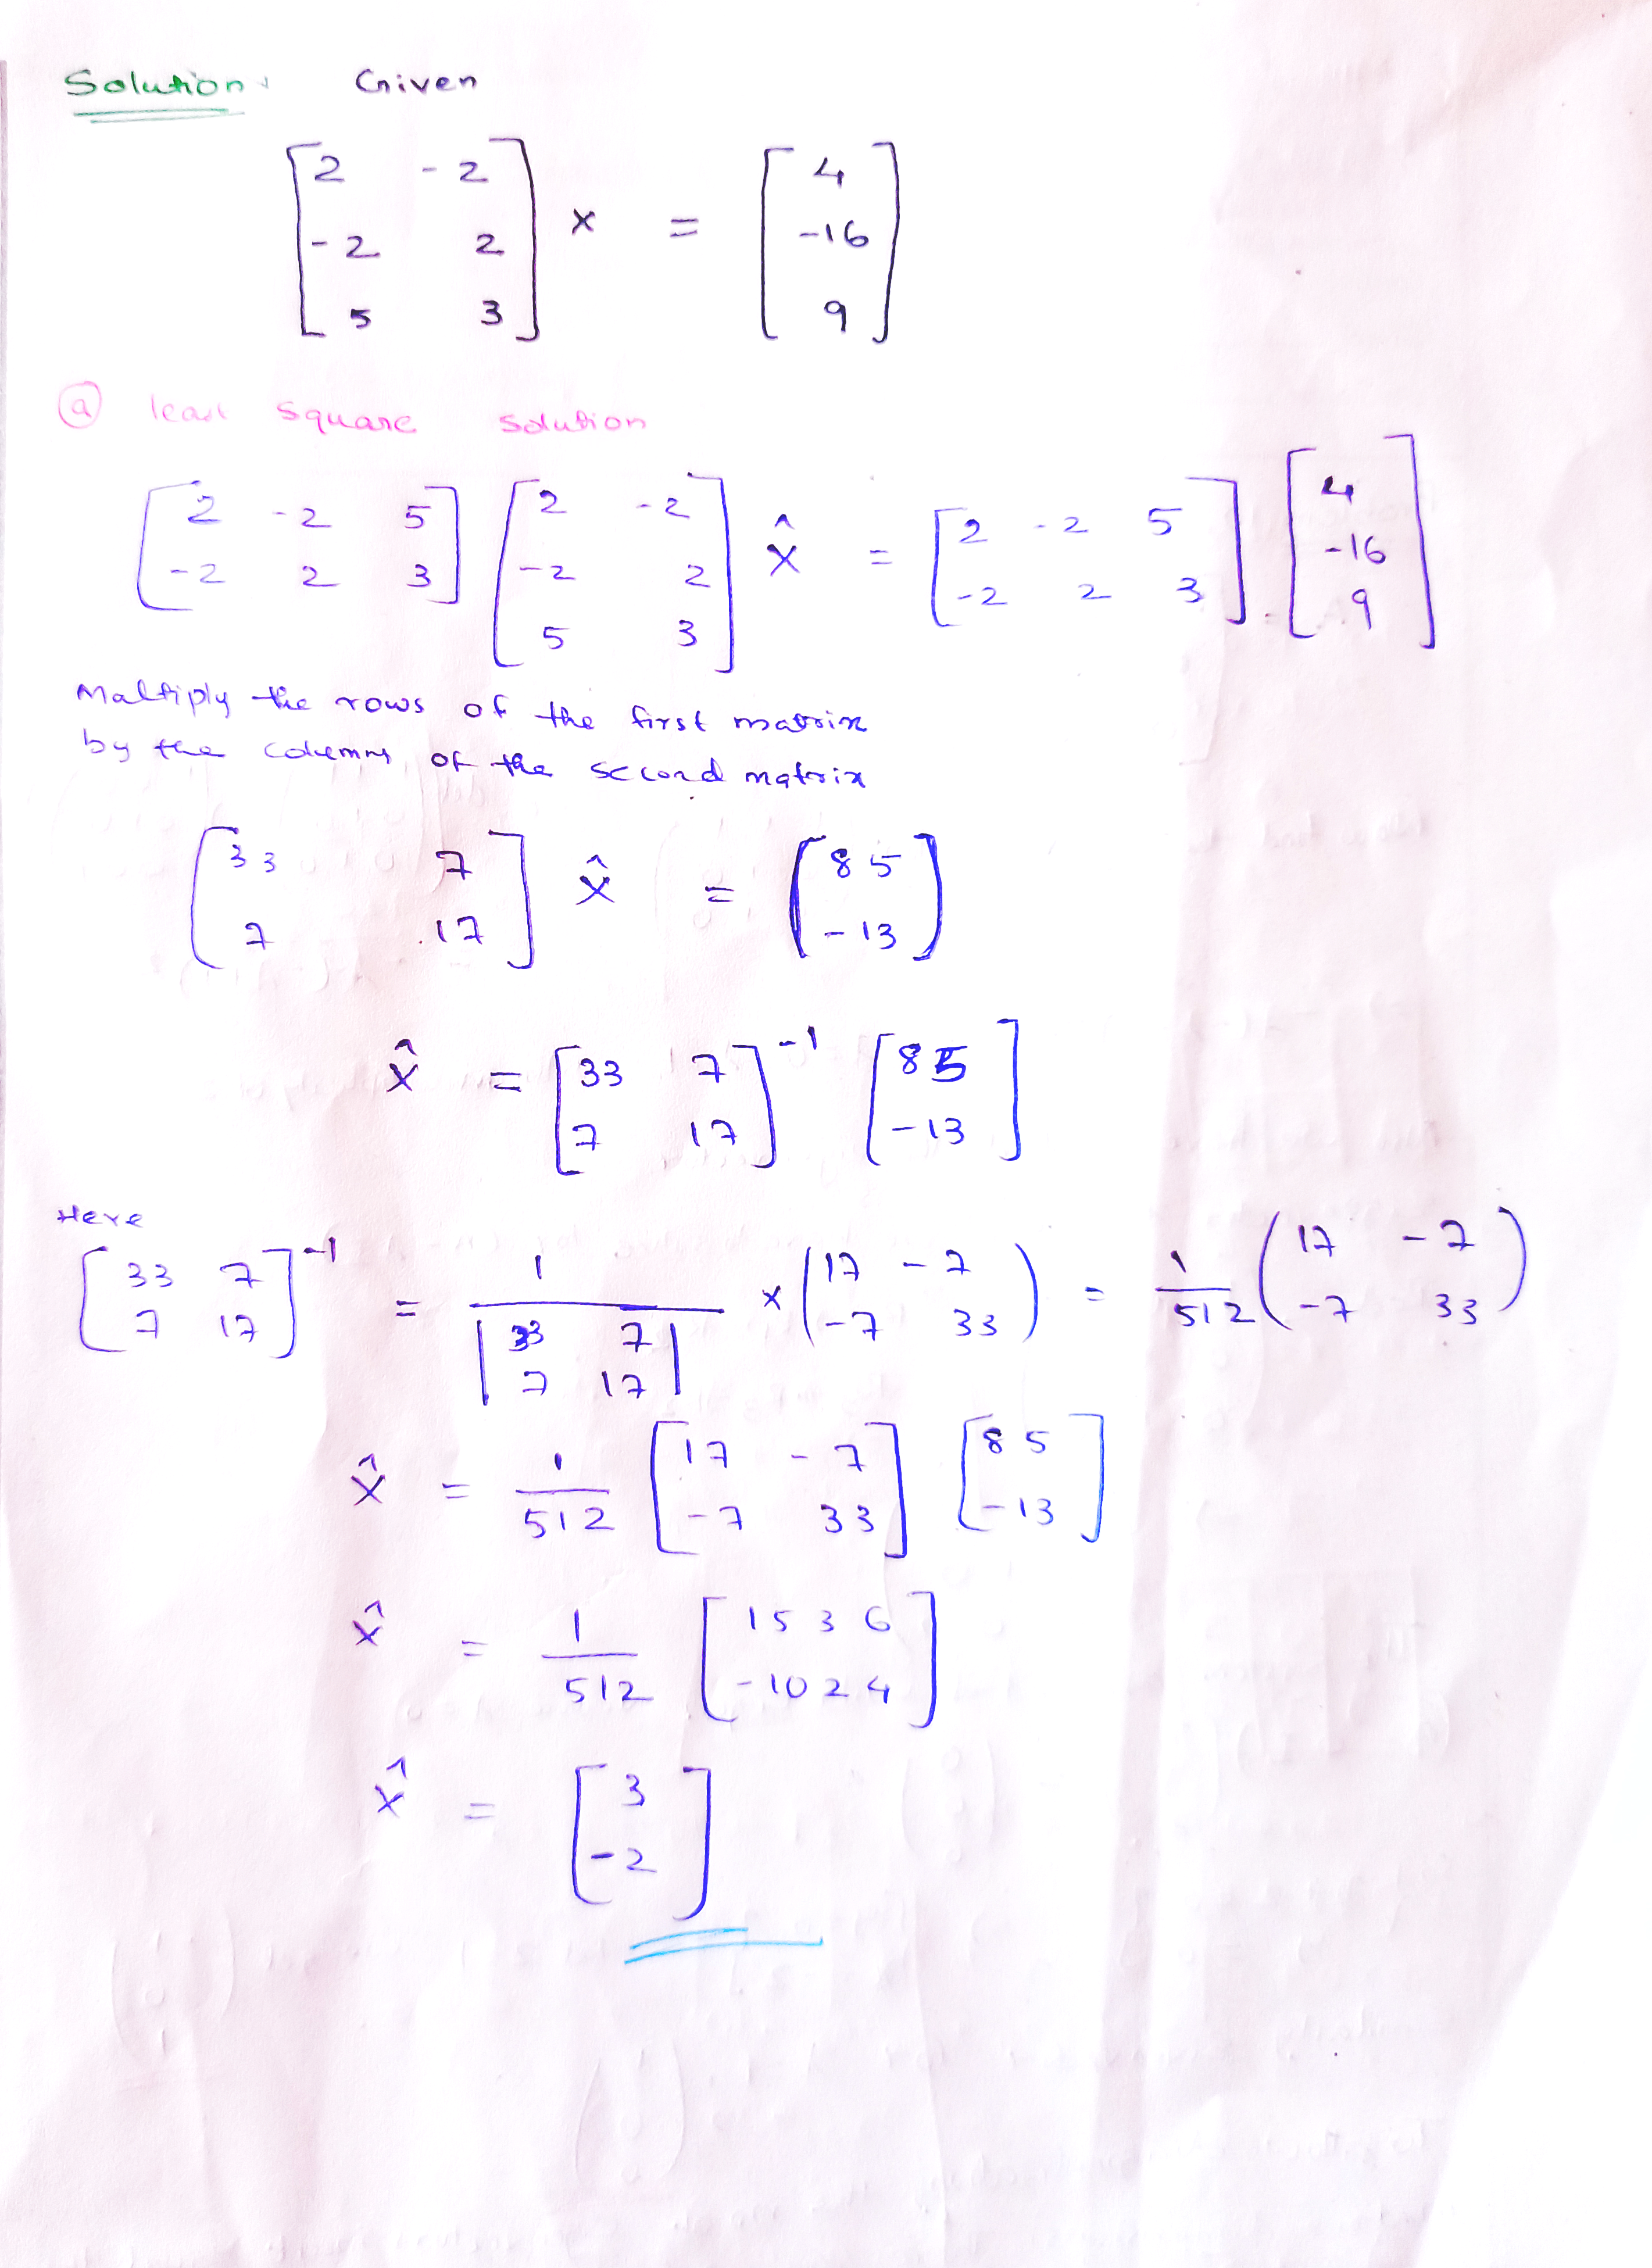 Solution: Given
[2 -2
-2 2
5 3] x = [4
-16
9]
(a) least square solution
[2 -2 5
-2 2 3] [2 -2
-2 2
5 3] x̂ = [2 -2 5
-2 2 3] [4
-16
9]
Maltiply the rows of the first matrix
by the columns of the second matrix
[33 7
7 17] x̂ = (85
-13)
x̂ = [33 7
7 17]⁻¹ [85
-13]
Here
[33 7
7 17]⁻¹ = 1 / |33 7
7 17| × (17 -7
-7 33) = 1/512 (17 -7
-7 33)
x̂ = 1/512 [17 -7
-7 33] [85
-13]
x̂ = 1/512 [1536
-1024]
x̂ = [3
-2]